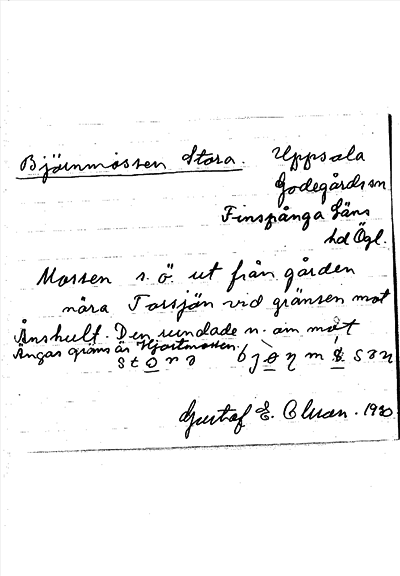 Björnmossen Stora.
Uppsala
Godegårds sn
Finspånga Läns
hd Ögl.
Mossen s. ö. ut från gården
nära Torsjön vid gränsen mot
Ånshult. Den rundade n. om mot
Ängas gräns är Hjortmossen.
Gustaf E. Olsson. 1930